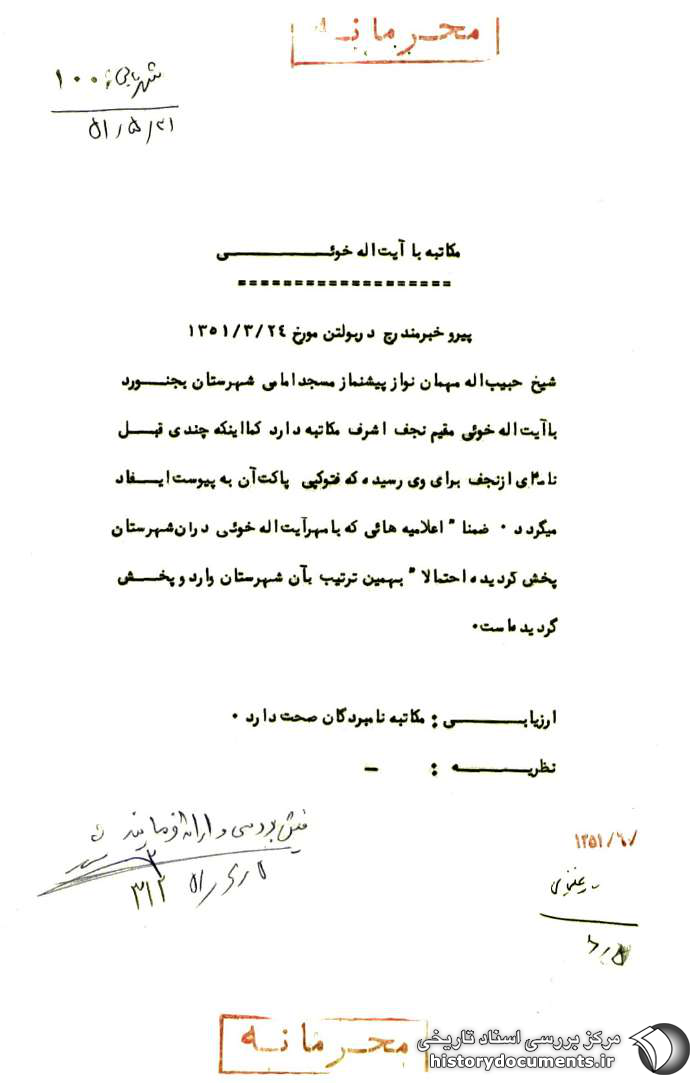 محرمانه
شهربانی ۱۰۰
۵۱/۵/۲۱
مکاتبه با آیت‌اله خوئی
پیرو خبرمندرج در بولتن مورخ ۱۳۵۱/۳/۲۴
شیخ حبیب‌اله مهمان نواز پیشنماز مسجد امامی شهرستان بجنورد
با آیت‌اله خوئی مقیم نجف اشرف مکاتبه دارد کما اینکه چندی قبل
نامه‌ای از نجف برای وی رسیده که فتوکپی پاکت آن به پیوست ایفاد
میگردد ۰ ضمنا" اعلامیه هائی که با مهر آیت‌اله خوئی در ان شهرستان
پخش گردیده احتمالا" بهمین ترتیب بآن شهرستان وارد و پخش
گردیده است۰
ارزیابی : مکاتبه نامبردگان صحت دارد ۰
نظریه : -
بررسی و ارائه فرمایند
۳۱۲
۱۳۵۱/۶/
محرمانه
مرکز بررسی اسناد تاریخی
historydocuments.ir